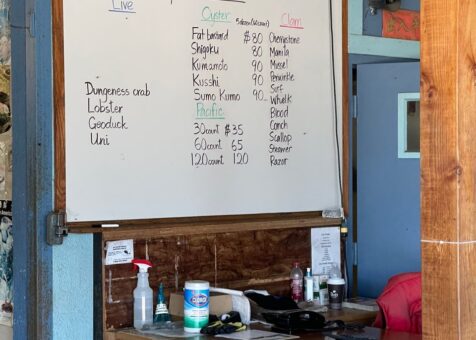 Live
Dungeness crab
Lobster
Geoduck
Uni
Oyster
5 dozen (60 count)
Fat Bastard $80
Shigoku 80
Kumamoto 90
Kusshi 90
Sumo Kumo 90
Pacific
30 count $35
60 count 65
120 count 120
Clam
Cherrystone
Manila
Mussel
Periwinkle
Surf
Whelk
Blood
Conch
Scallop
Steamer
Razor
CLOROX